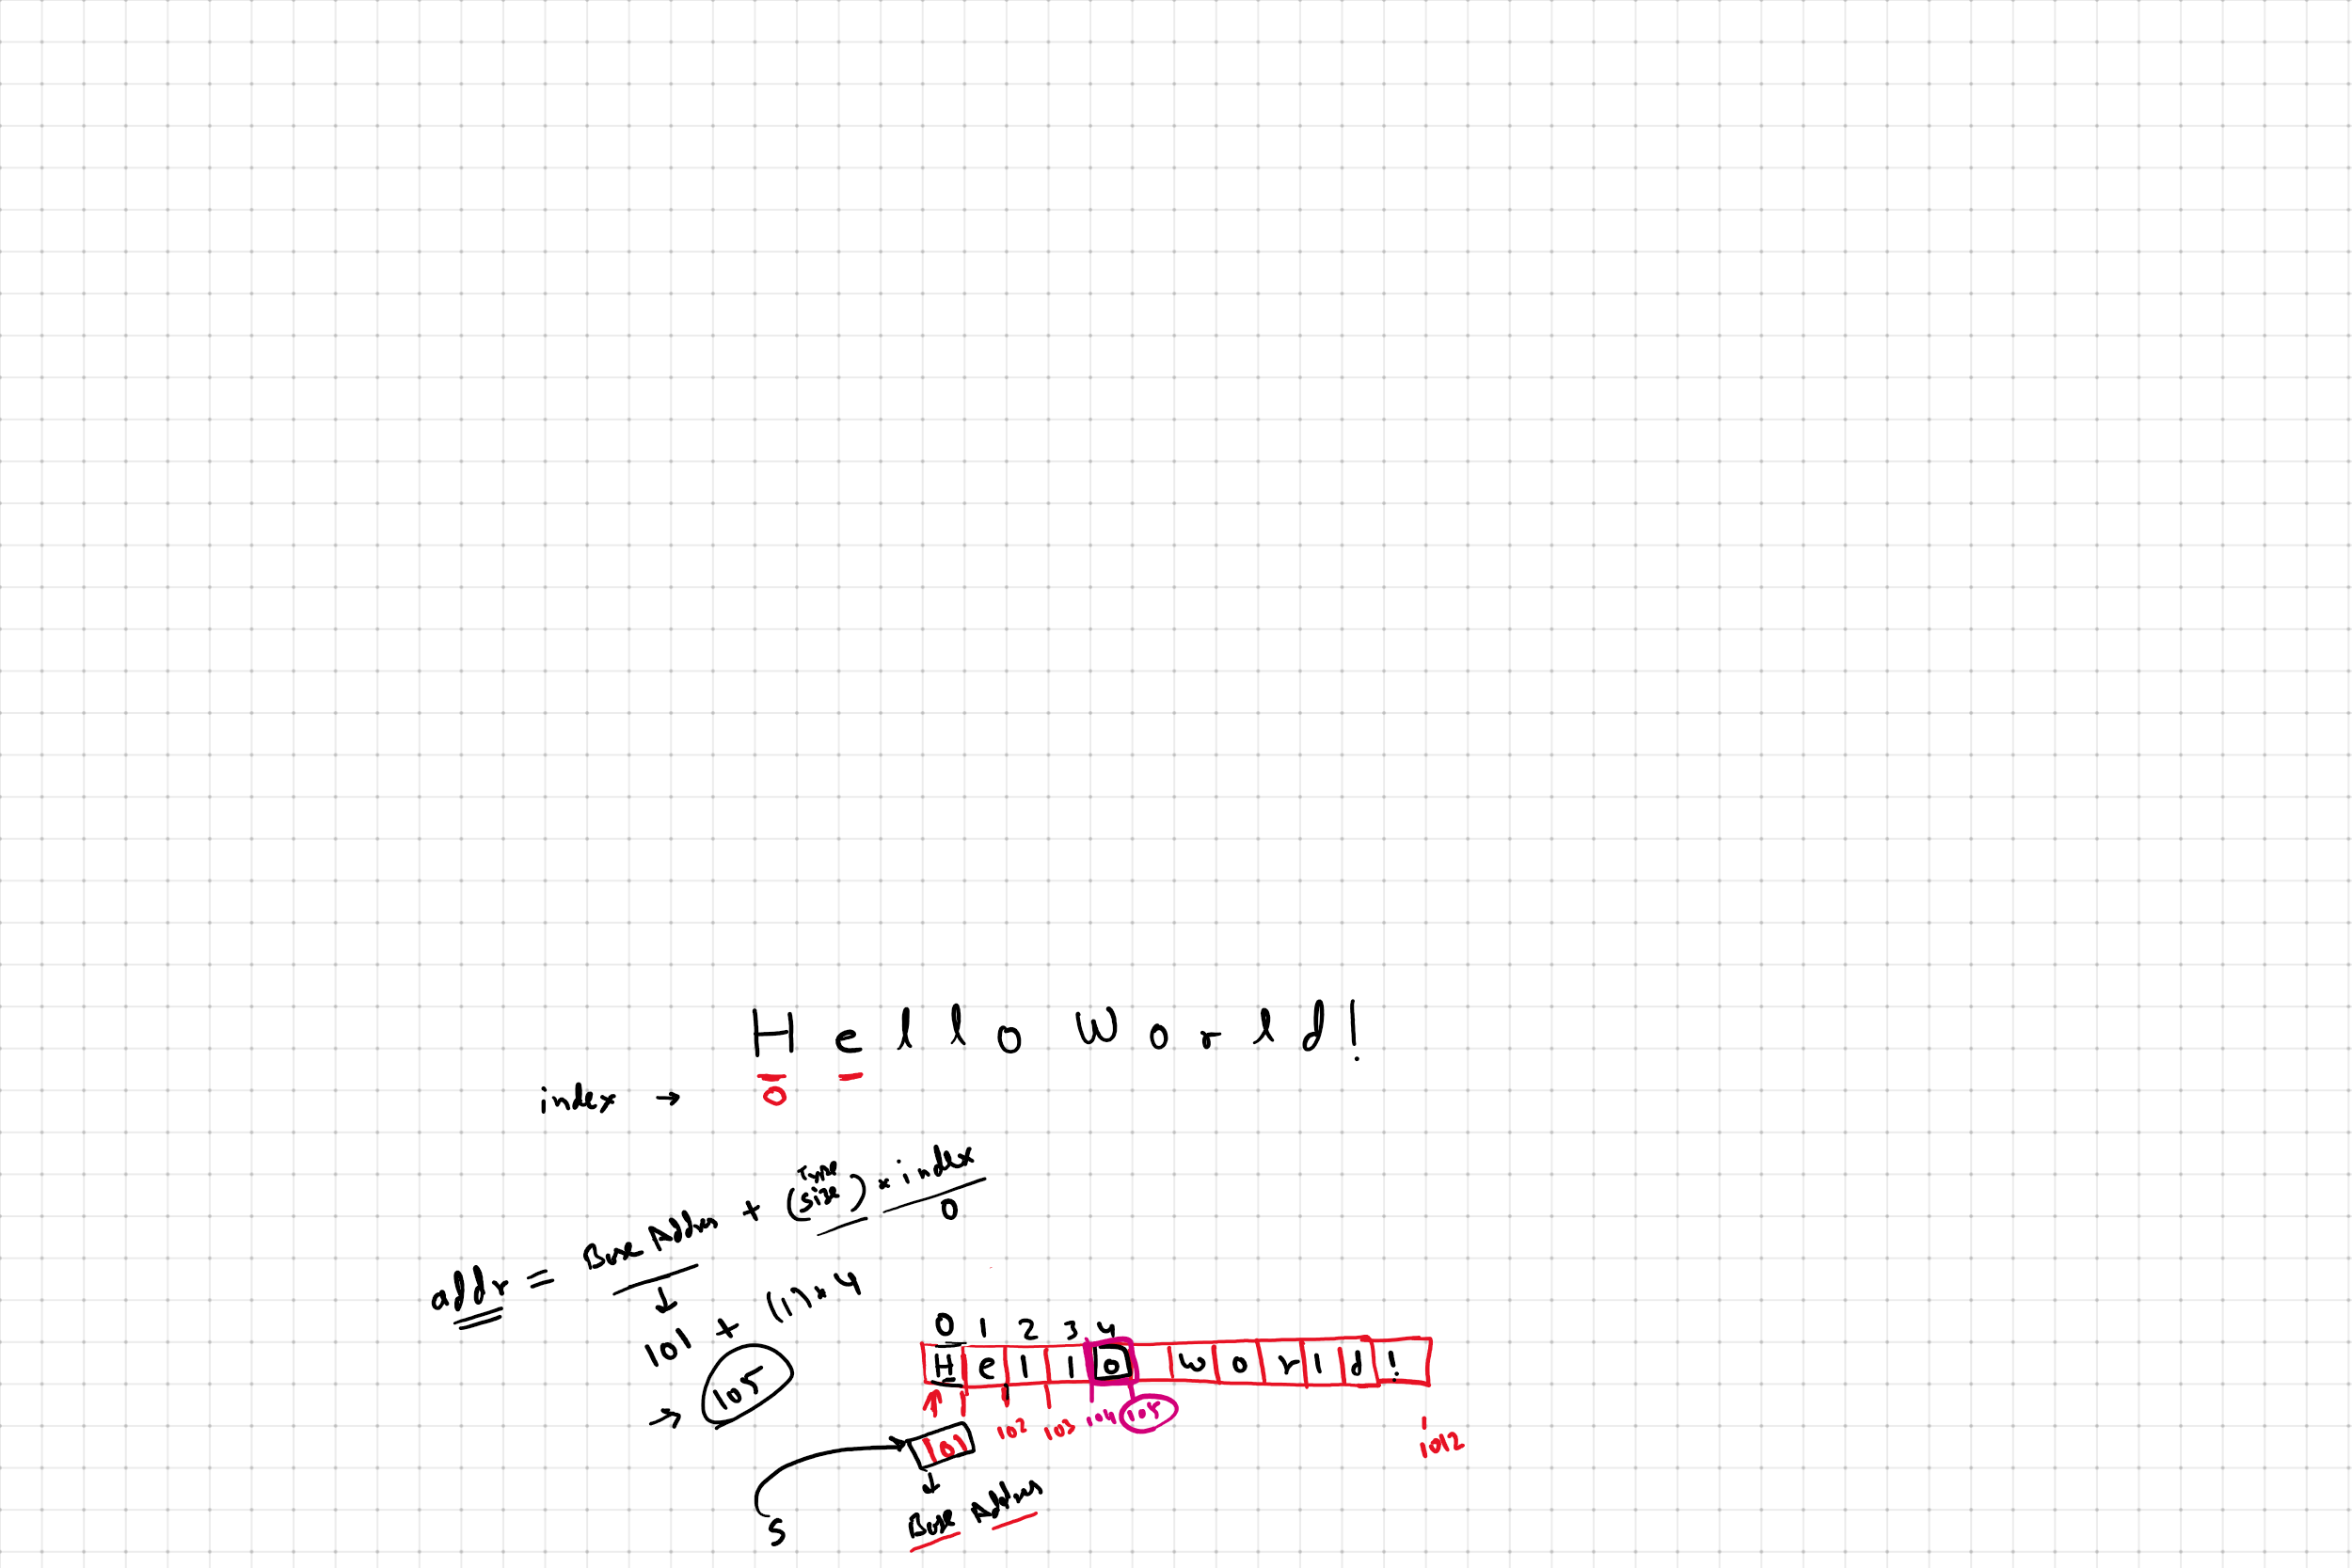 Hello World!
index → 0
addr = Base Address + (Type size) × index
0
↓
101 + (1) × 4
→ 105
0 1 2 3 4
H e l l o w o r l d !
101 102 103 104 105 1012
↓
Base Address
s